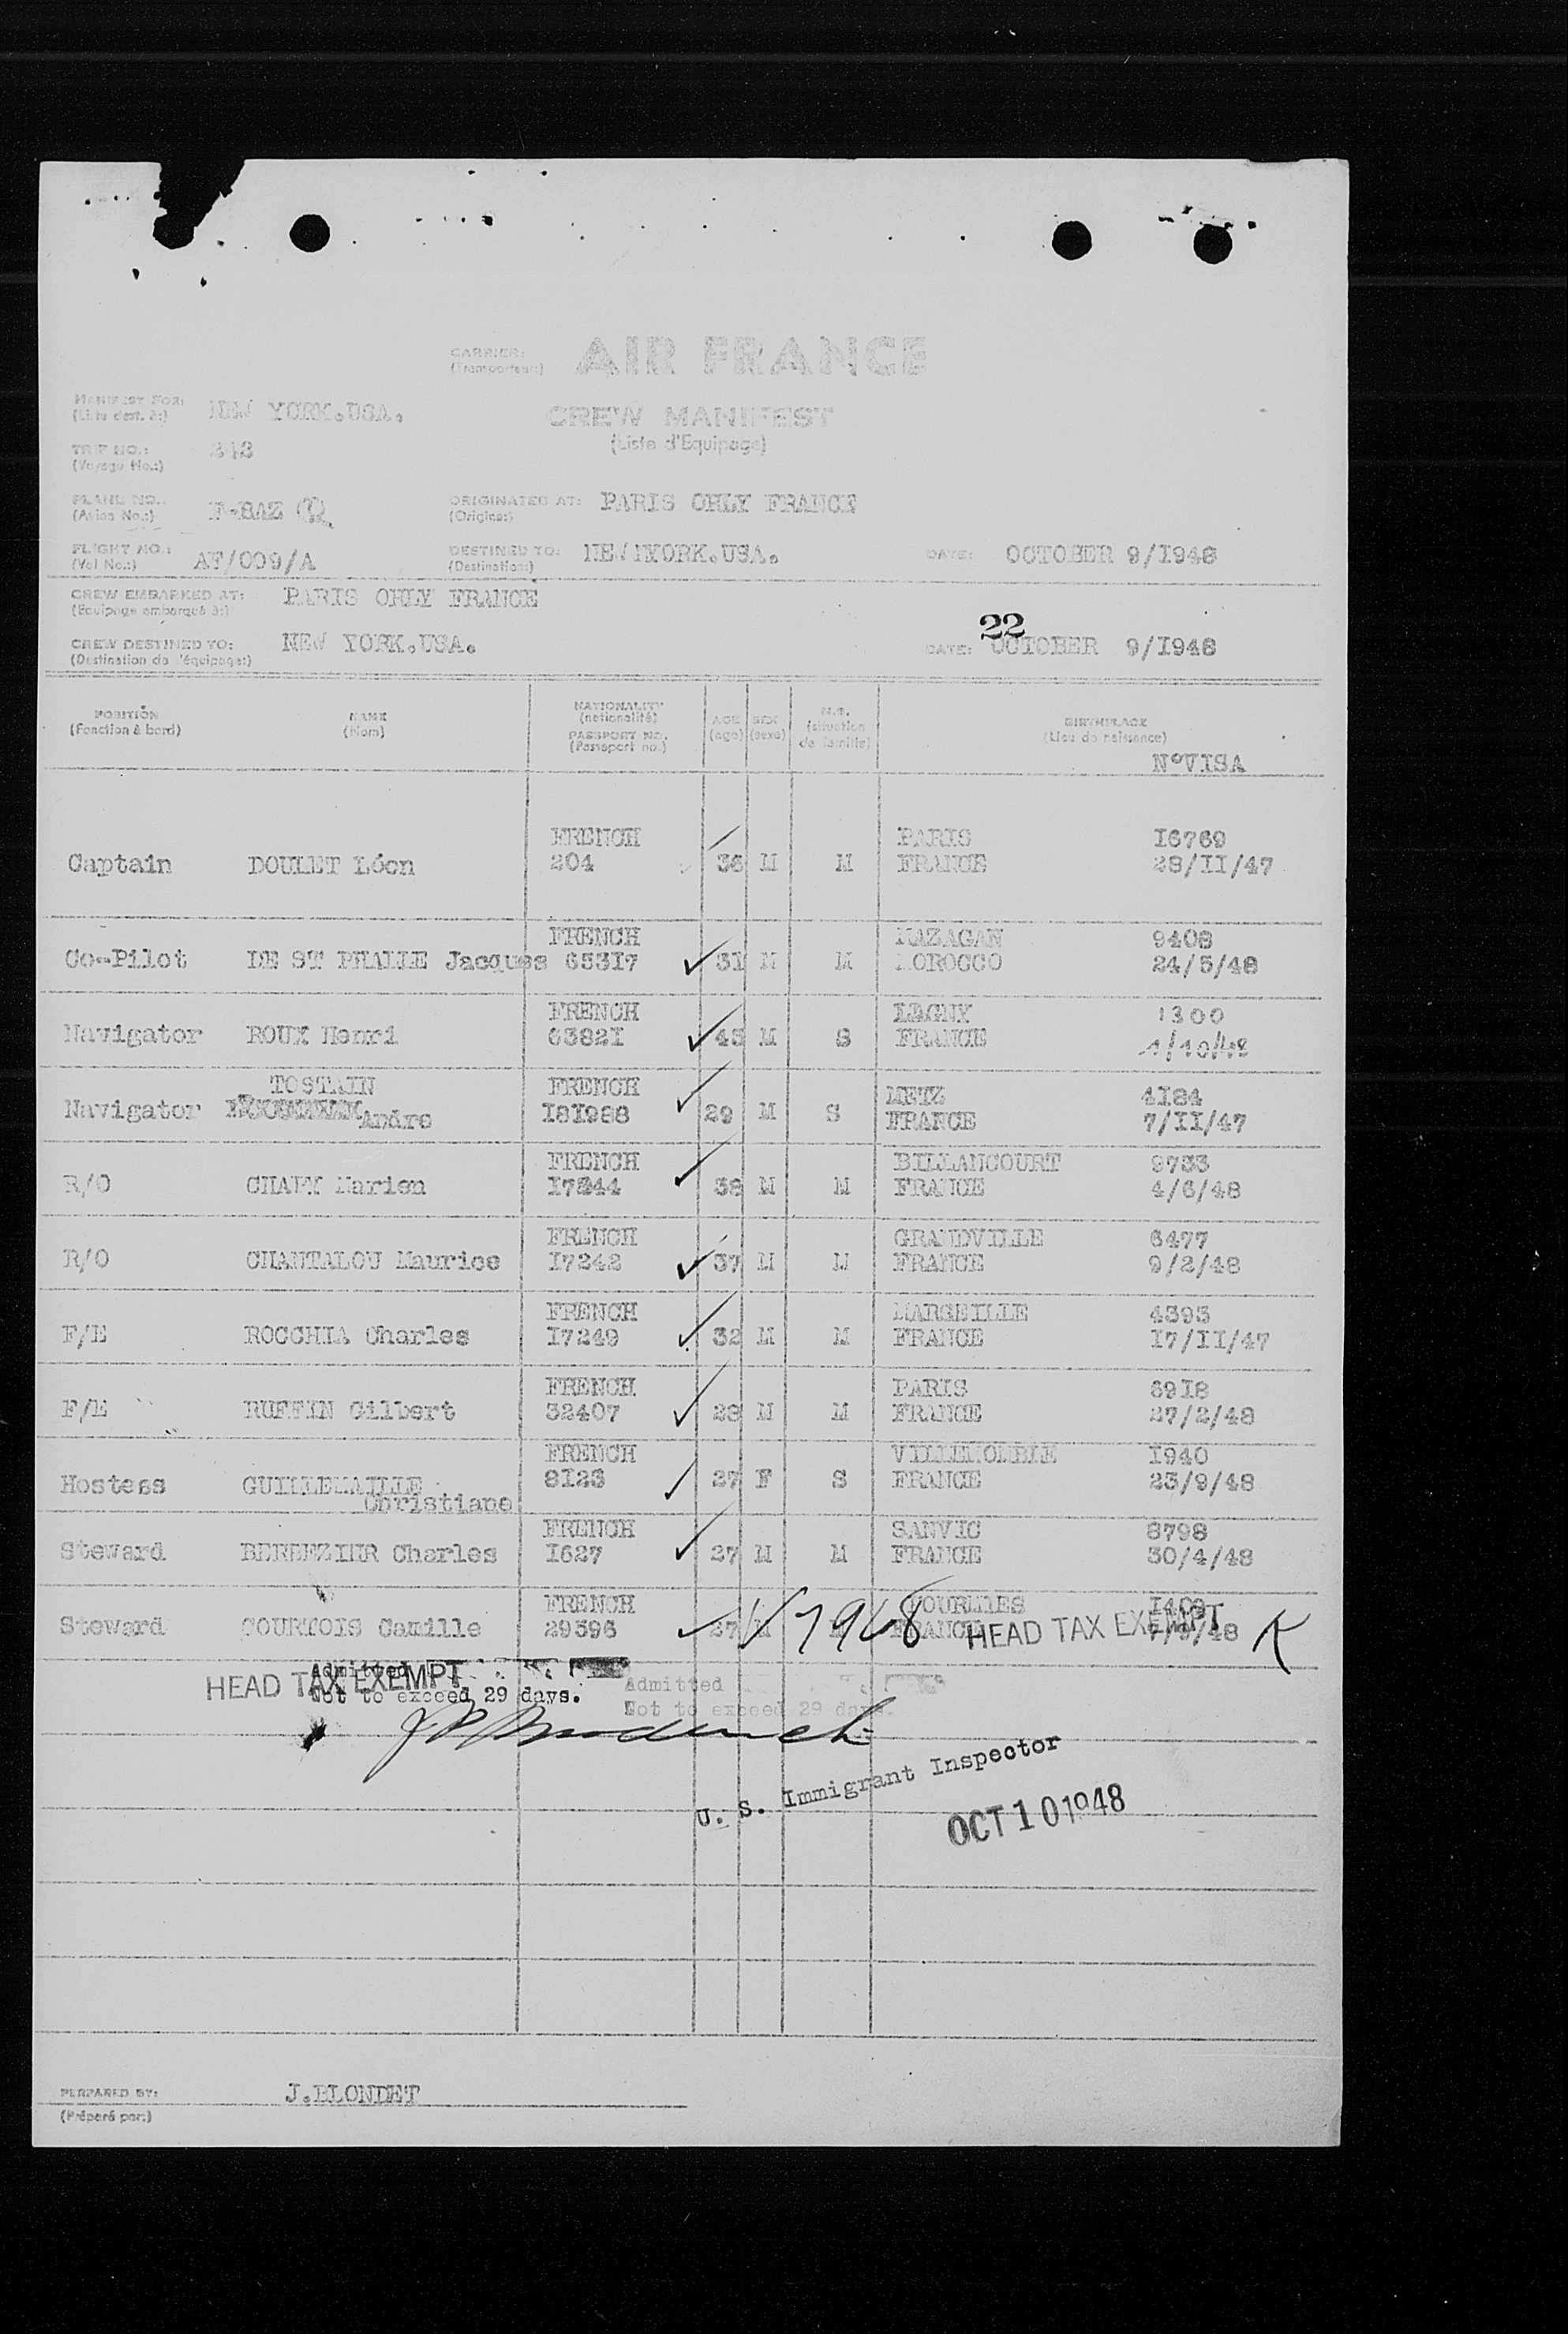 CARRIER: AIR FRANCE
(Transporteur:)
MANIFEST FOR: NEW YORK.USA.
(Liste dest. à:)
CREW MANIFEST
(Liste d'Equipage)
TRIP NO.:
(Voyage No.:)
PLANE NO.: F-BAZ Q
(Avion No.:)
ORIGINATED AT: PARIS ORLY FRANCE
(Origine:)
FLIGHT NO.: AF/009/A
(Vol No.:)
DESTINED TO: NEWYORK.USA.
(Destination:)
DATE: OCTOBER 9/I948
CREW EMBARKED AT: PARIS ORLY FRANCE
(Equipage embarqué à:)
22
CREW DESTINED TO: NEW YORK.USA.
(Destination de l'équipage:)
DATE: OCTOBER 9/I948
POSITION NAME NATIONALITY AGE SEX M.S. BIRTHPLACE
(Fonction à bord) (Nom) (nationalité) (age) (sexe) (situation de famille) (Lieu de naissance)
PASSPORT NO.
(Passeport no.)
N°VISA
FRENCH PARIS I6769
Captain DOULET Léon 204 36 M M FRANCE 28/II/47
FRENCH MAZAGAN 9408
Co-Pilot DE ST PHALLE Jacques 653I7 3I M M MOROCCO 24/5/48
FRENCH LAGNY 1300
Navigator ROUX Henri 6382I 45 M S FRANCE 1/10/48
TOSTAIN FRENCH METZ 4I84
Navigator Andre I8I988 29 M S FRANCE 7/II/47
FRENCH BILLANCOURT 9733
R/O CHAPY Marien 38 M M FRANCE 4/6/48
FRENCH GRANDVILLE 6477
R/O CHANTALOU Maurice I7242 37 M M FRANCE 9/2/48
FRENCH MARSEILLE 4393
F/E ROCCHIA Charles I7249 32 M M FRANCE I7/II/47
FRENCH PARIS 69I8
F/E RUFFIN Gilbert 32407 28 M M FRANCE 27/2/48
FRENCH VILLEMOMBLE I940
Hostess GUILLEMAILLE 8I23 27 F S FRANCE 23/9/48
Christiane
FRENCH SANVIC 8798
Steward BERBEZIER Charles I627 27 M M FRANCE 30/4/48
FRENCH FOURMIES
Steward COURTOIS Camille 29396 27 M FRANCE
HEAD TAX EXEMPT K
HEAD TAX EXEMPT
Admitted
Not to exceed 29 days.
Admitted
Not to exceed 29 days.
U. S. Immigrant Inspector
OCT 10 1948
PERPARED BY: J.BLONDET
(Préparé par:)